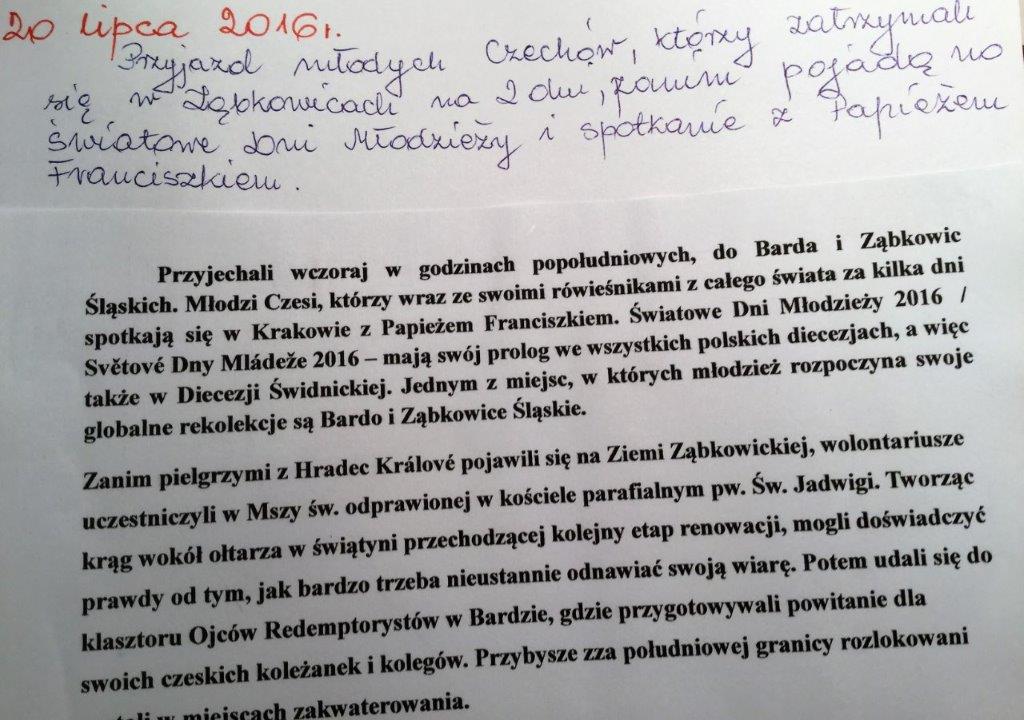 20 lipca 2016r.
Przyjazd młodych Czechów, którzy zatrzymali
się w Ząbkowicach na 2 dni, zanim pojadą na
Światowe Dni Młodzieży i spotkanie z Papieżem
Franciszkiem.
Przyjechali wczoraj w godzinach popołudniowych, do Barda i Ząbkowic
Śląskich. Młodzi Czesi, którzy wraz ze swoimi rówieśnikami z całego świata za kilka dni
spotkają się w Krakowie z Papieżem Franciszkiem. Światowe Dni Młodzieży 2016 /
Světové Dny Mládeže 2016 – mają swój prolog we wszystkich polskich diecezjach, a więc
także w Diecezji Świdnickiej. Jednym z miejsc, w których młodzież rozpoczyna swoje
globalne rekolekcje są Bardo i Ząbkowice Śląskie.
Zanim pielgrzymi z Hradec Králové pojawili się na Ziemi Ząbkowickiej, wolontariusze
uczestniczyli w Mszy św. odprawionej w kościele parafialnym pw. Św. Jadwigi. Tworząc
krąg wokół ołtarza w świątyni przechodzącej kolejny etap renowacji, mogli doświadczyć
prawdy od tym, jak bardzo trzeba nieustannie odnawiać swoją wiarę. Potem udali się do
klasztoru Ojców Redemptorystów w Bardzie, gdzie przygotowywali powitanie dla
swoich czeskich koleżanek i kolegów. Przybysze zza południowej granicy rozlokowani
w miejscach zakwaterowania.